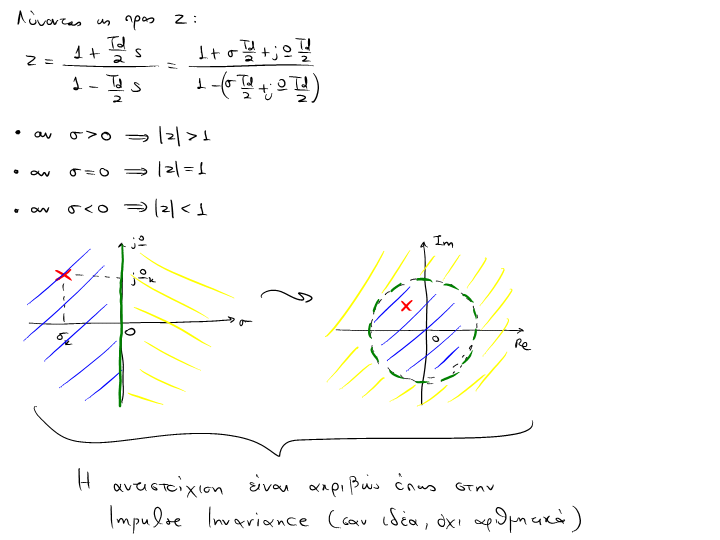 Λύνοντας ως προς z:
z = (1 + Td/2 s) / (1 - Td/2 s) = (1 + σ Td/2 + jΩ Td/2) / (1 - (σ Td/2 + jΩ Td/2))
• αν σ>0 ⟹ |z| > 1
• αν σ=0 ⟹ |z| = 1
• αν σ<0 ⟹ |z| < 1
jΩ Im
jΩκ
σ
σκ 0 0 Re
Η αντιστοίχιση είναι ακριβώς όπως στην
Impulse Invariance (σαν ιδέα, όχι αριθμητικά)